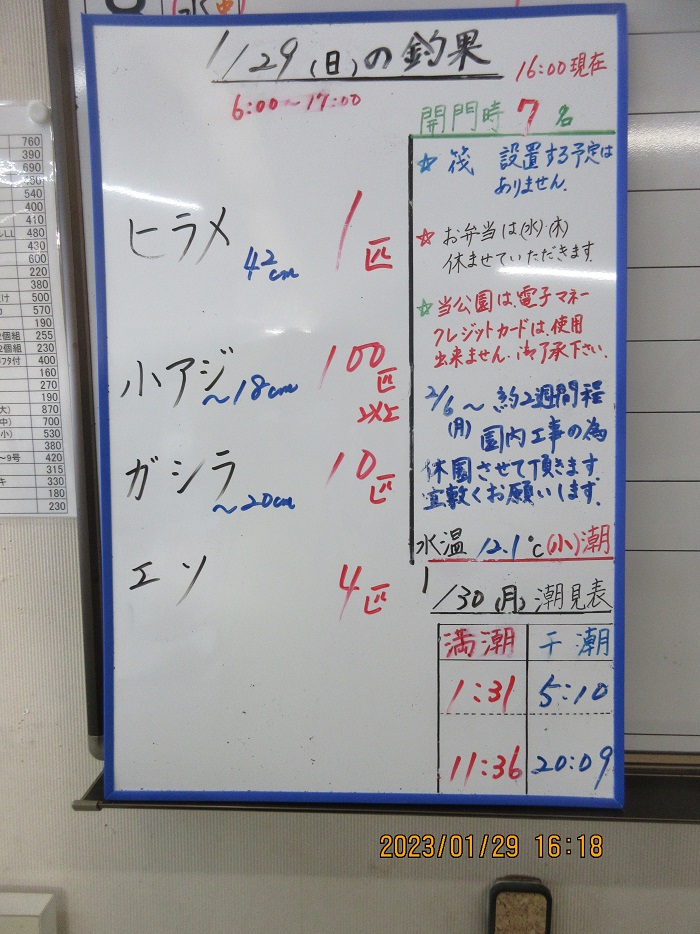 1/29(日)の釣果
16:00現在
6:00~17:00
開門時 7名
ヒラメ 42cm 1匹
小アジ ~18cm 100匹以上
ガシラ ~20cm 10匹
エソ 4匹
☆ 筏 設置する予定は
ありません.
☆ お弁当は(水)・(木)
休ませていただきます.
☆ 当公園は、電子マネー
クレジットカードは、使用
出来ません。御了承下さい.
2/6~約2週間程
(月) 園内工事の為
休園させて頂きます
宜敷くお願いします.
水温 12.1℃ (小)潮
1/30(月)潮見表
満潮 干潮
1:31 5:10
11:36 20:09
760
390
690
540
400
410
LL 480
430
600
220
380
け 500
570
190
2個組 255
2個組 230
フタ付 400
160
270
190
大) 870
中) 700
小) 530
380
~9号 420
315
キ 330
180
230
2023/01/29 16:18